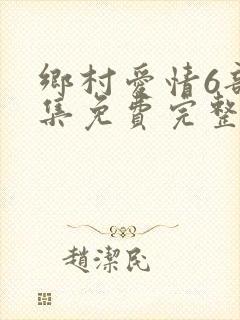 鄉村愛情6部
集免費完整
趙潔民